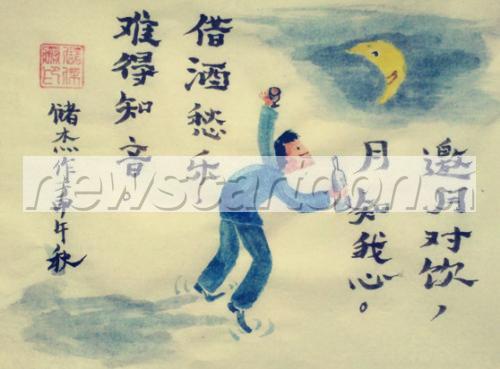 邀月对饮,
月知我心。
借酒愁乐
难得知音。
储杰作甲午秋
newscartoon